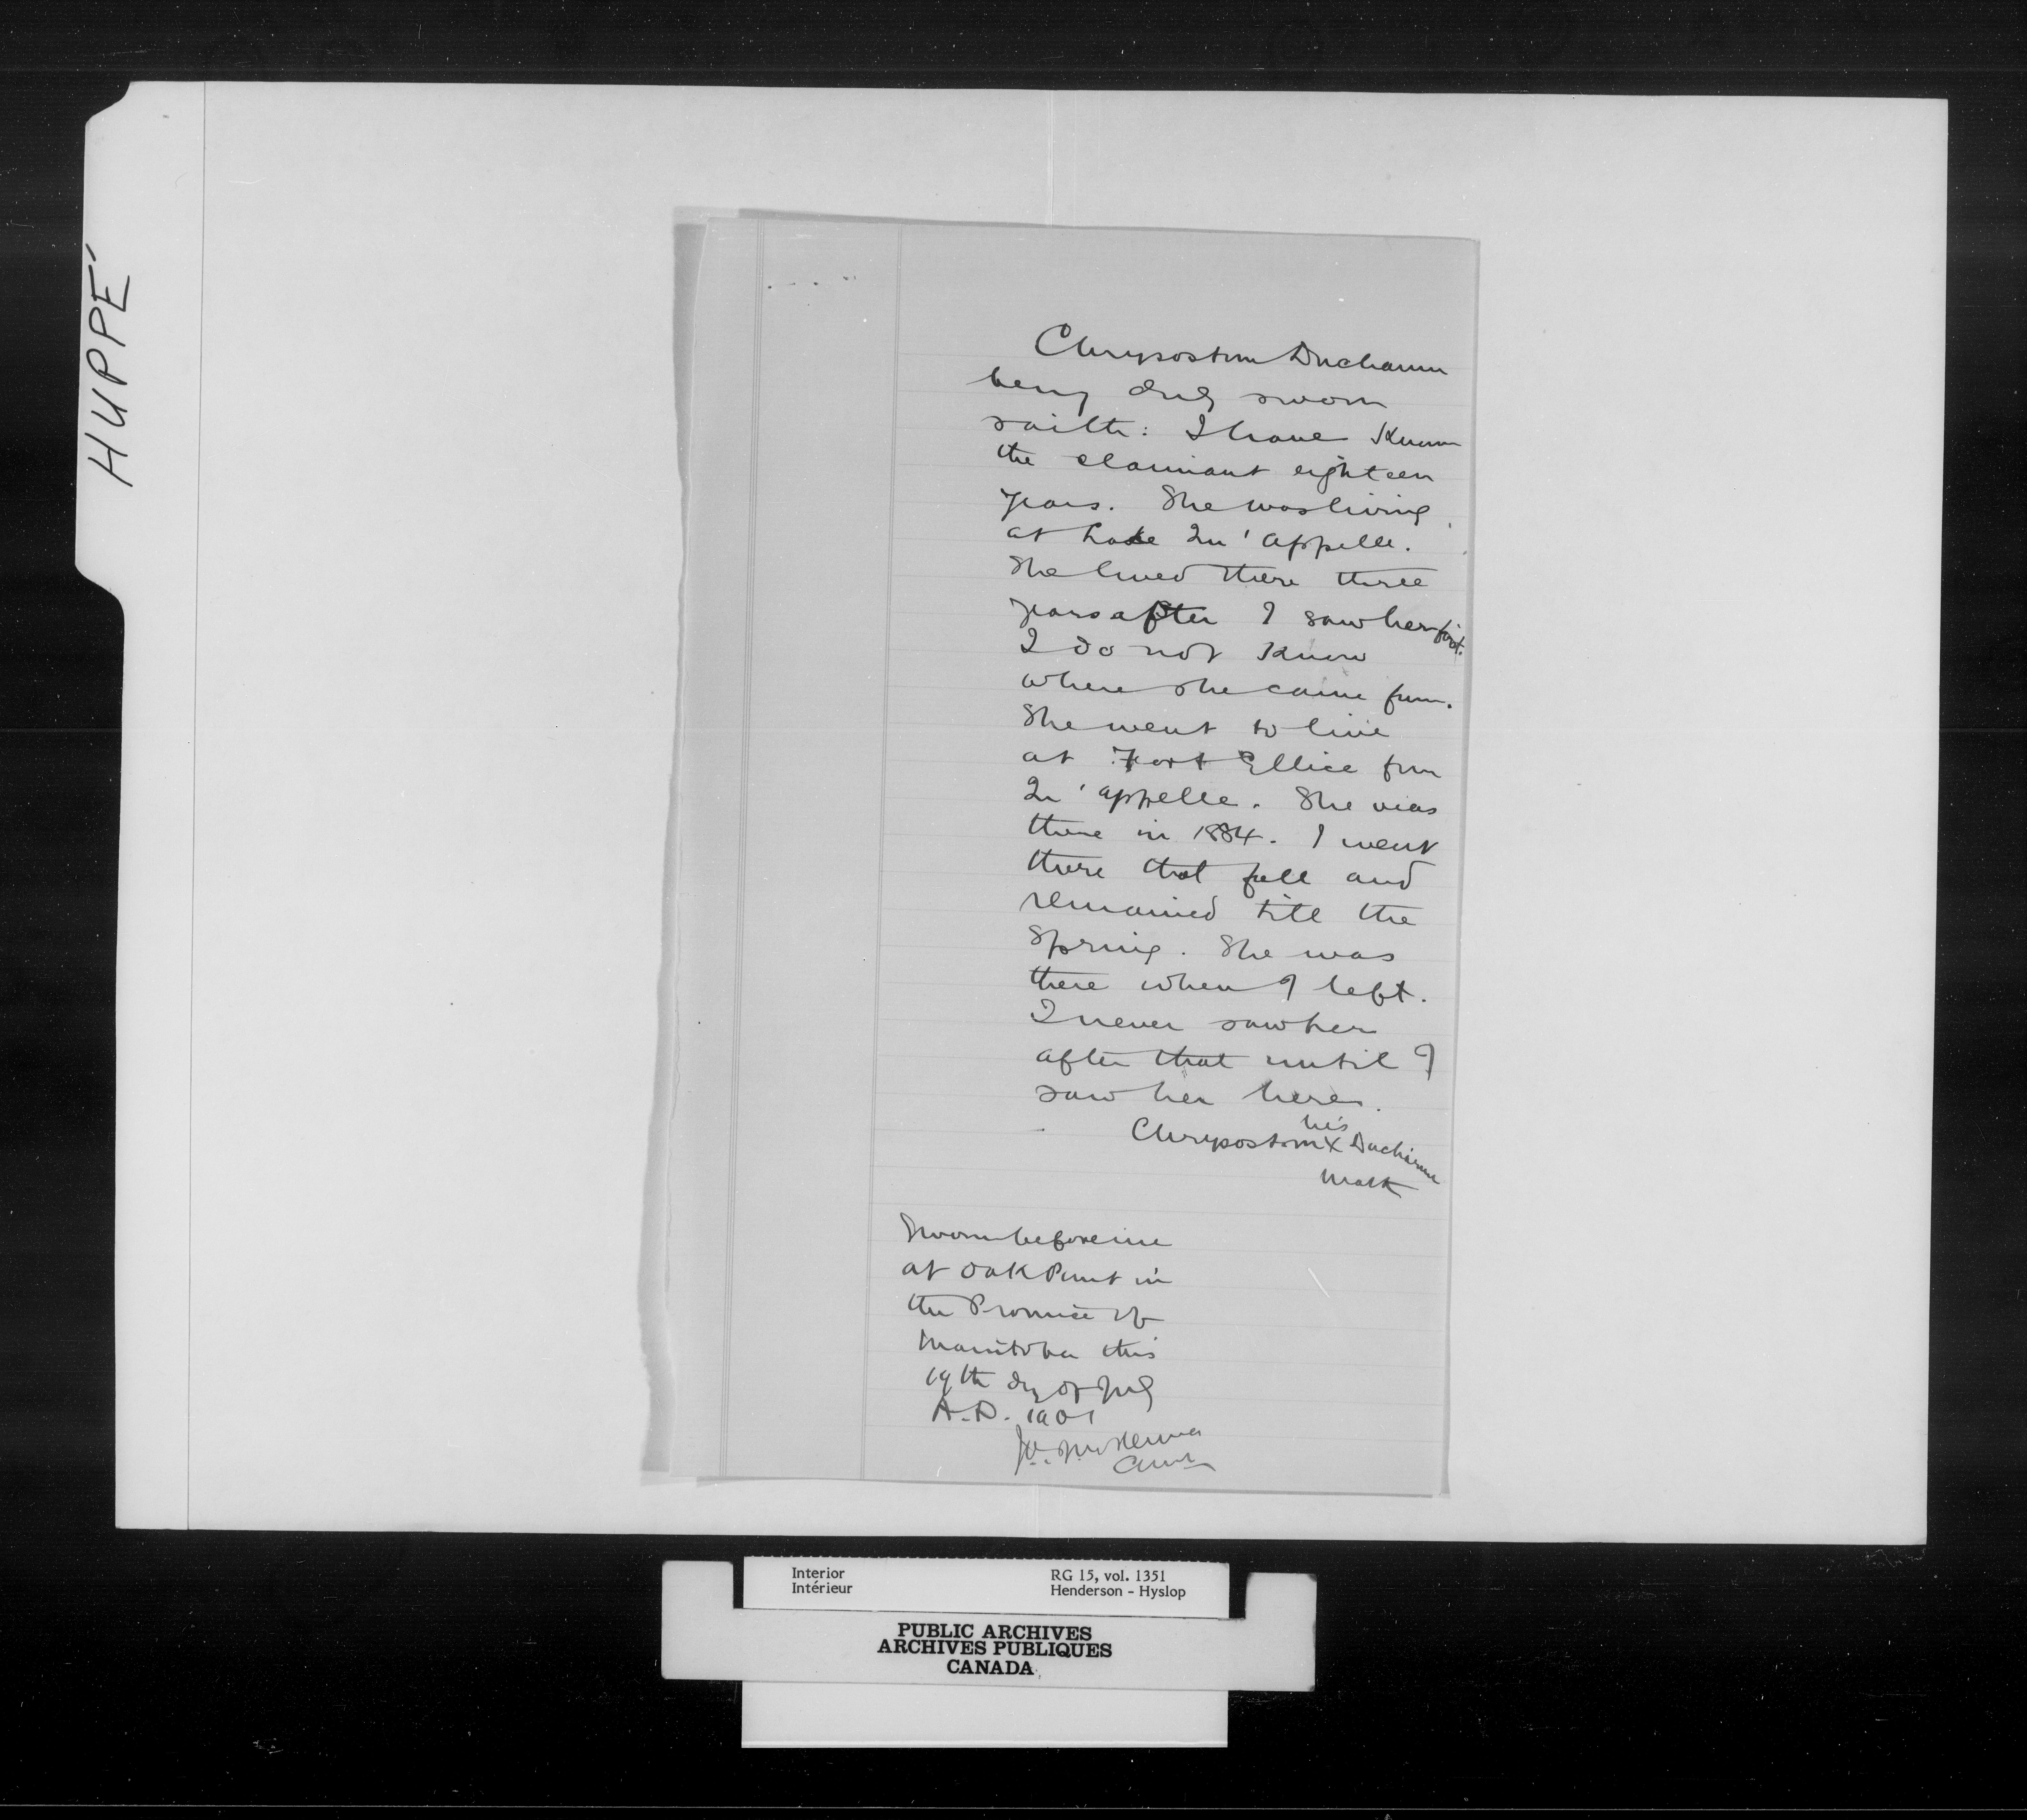 HUPPÉ
Chrysostom Ducharme
being duly sworn
saith: I have known
the claimant eighteen
years. She was living
at Lake Qu'appelle.
She lived there three
years after I saw her first.
I do not know
where she came from.
She went to live
at Fort Ellice from
Qu'appelle. She was
there in 1884. I went
there that fall and
remained till the
Spring. She was
there when I left.
I never saw her
after that until I
saw her here.
his
Chrysostom X Ducharme
mark
Sworn before me
at Oak Point in
the Province of
Manitoba this
19th day of July
A.D. 1901
McKenna
Comr
Interior
Intérieur
RG 15, vol. 1351
Henderson - Hyslop
PUBLIC ARCHIVES
ARCHIVES PUBLIQUES
CANADA